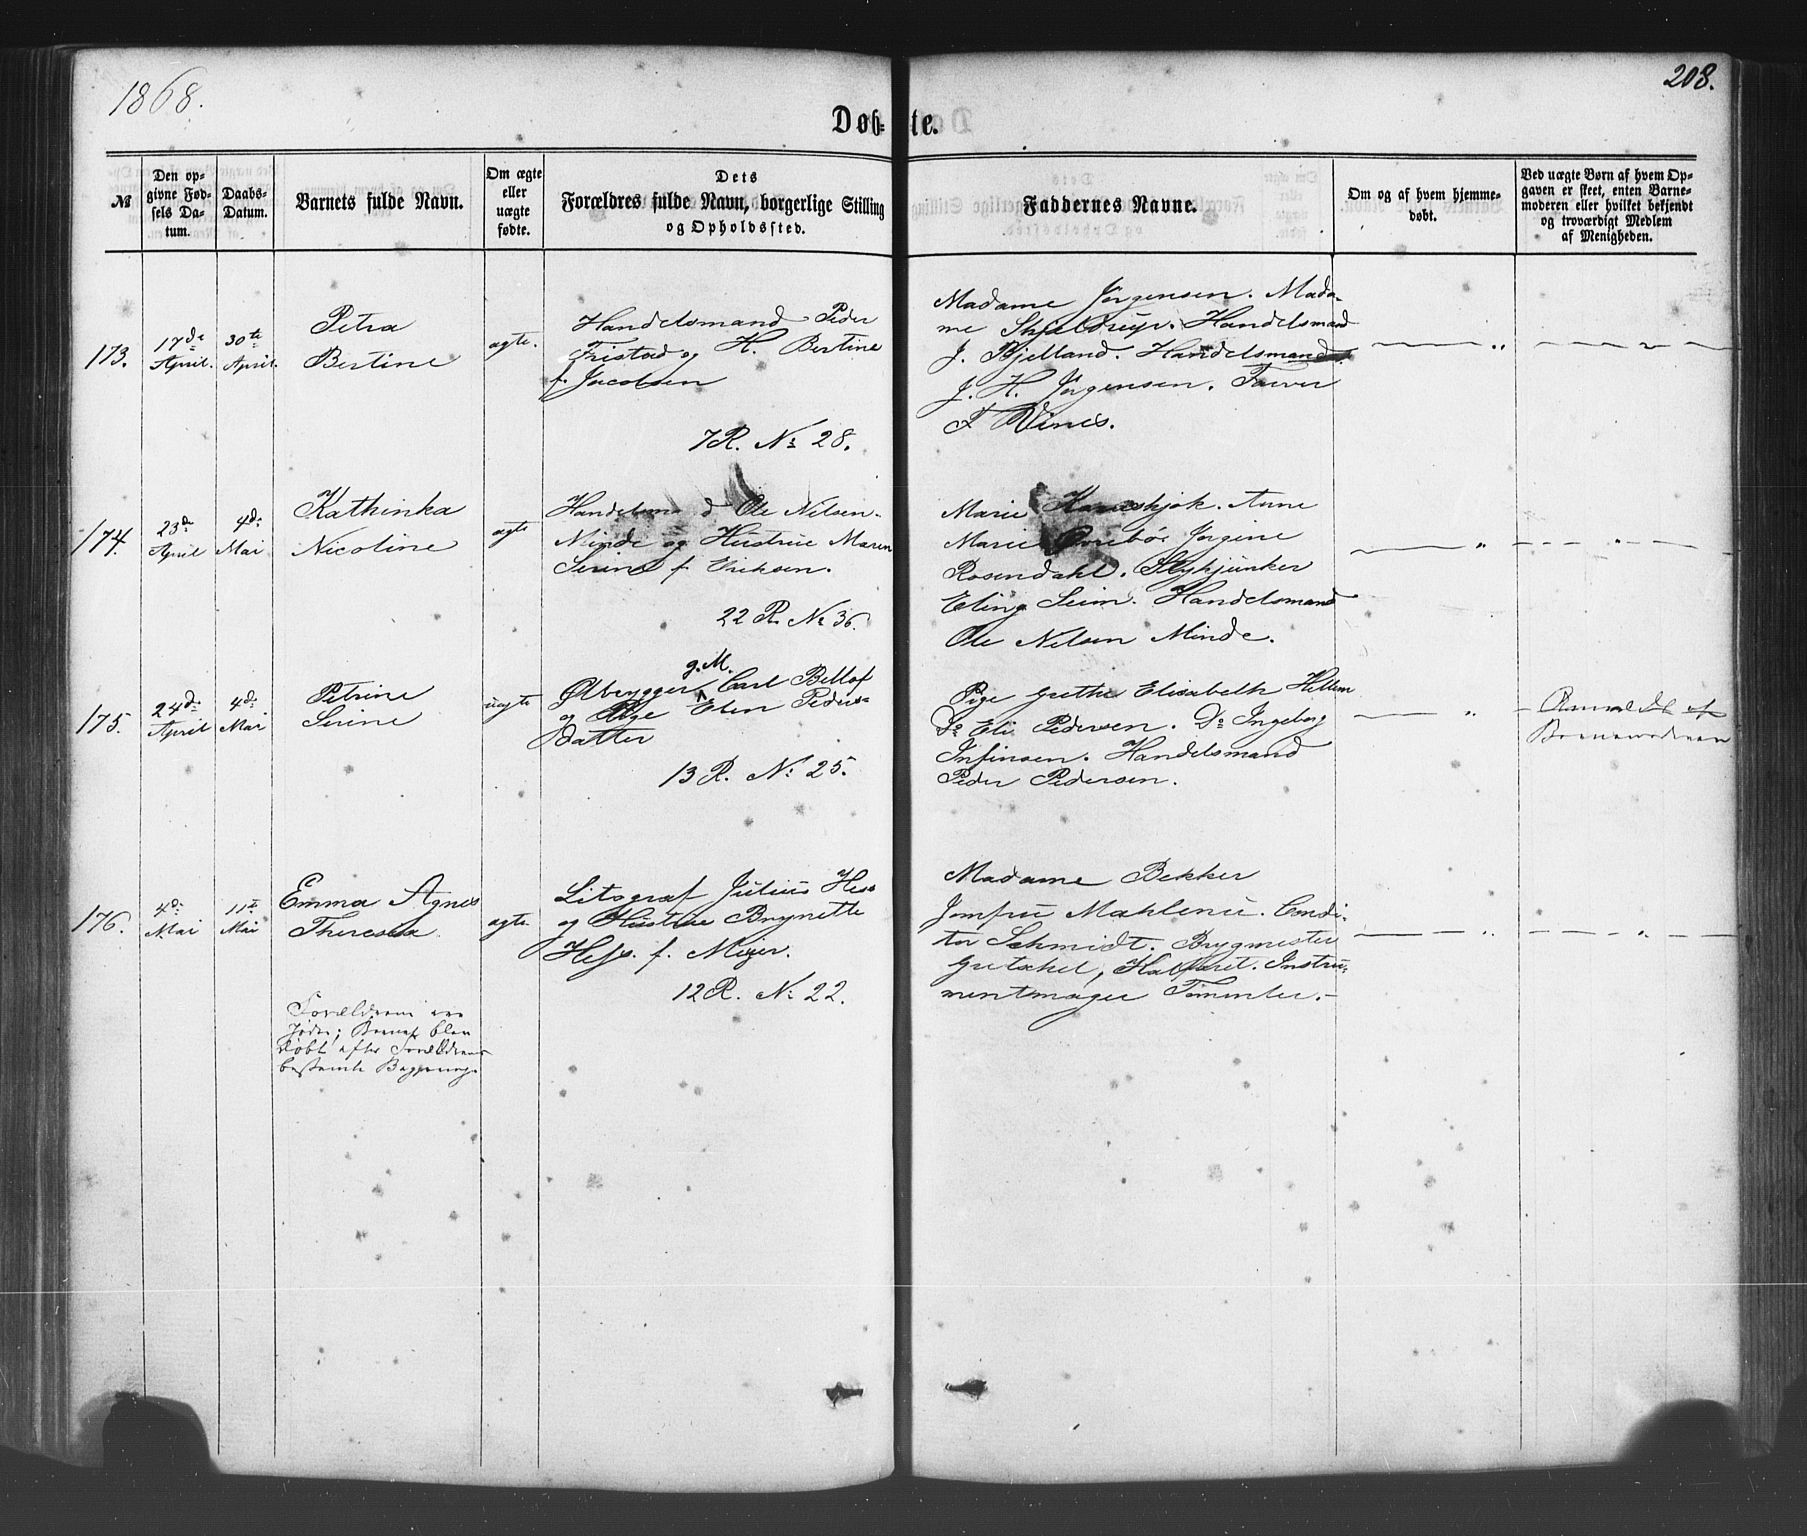 1868.
208.
Døb-
te.
№
Den op-
givne Fød-
sels Da-
tum.
Daabs-
Datum.
Barnets fulde Navn.
Om ægte
eller
uægte
fødte.
Dets
Forældres fulde Navn, borgerlige Stilling
og Opholdssted.
Faddernes Navne.
Om og af hvem hjemme-
døbt.
Ved uægte Børn af hvem Op-
gaven er skeet, enten Barne-
moderen eller hvilket bekjendt
og troværdigt Medlem
af Menigheden.
173.
17de
April.
30te
April.
Petra
Bertine
ægte.
Handelsmand Peder
Tristad og H. Bertine
f. Jacobsen
7 R. No 28.
Madame Jørgensen. Mada-
me Skjeldrup. Handelsmand
J. Bjelland. Handelsmand
J. H. Jørgensen. Farver
F Vines.
174.
23de
April
4de
Mai
Kathinka
Nicoline
ægte
Ole Nilsen
Minde og Hustrue Maren
Serine f. Eriksen.
22 R. No 36.
Marie Anne
Marie Jørgine
Rosendahl. Stykjunker
Eling Seim. Handelsmand
Ole Nilsen Minde.
175.
24de
April
4de
Mai
Petrine
Serine
uægte
g. M.
Ølbrygger Carl Bellof
og Pige Elen Peders-
datter
13 R. No 25.
Pige Grethe Elisabeth Hellem
Do Eli Pedersen. Do Ingeborg
Infinsen. Handelsmand
Peder Pedersen.
Anmeldt af
Barnemoderen
176.
4de
Mai
11te
Mai
Emma Agnes
Theresea
ægte.
Litograf Julius Hess
og Hustrue Brynette
Hess. f. Meijer.
12 R. No 22.
Madame Bekker
Jomfru Mahlenu. Condi-
tor Schmidt. Brygmester
Gretschel, Kalfaret. Instru-
mentmager
Forældrene ere
Jøder; Barnet blev
døbt efter Forældrenes
bestemte Begjæring.